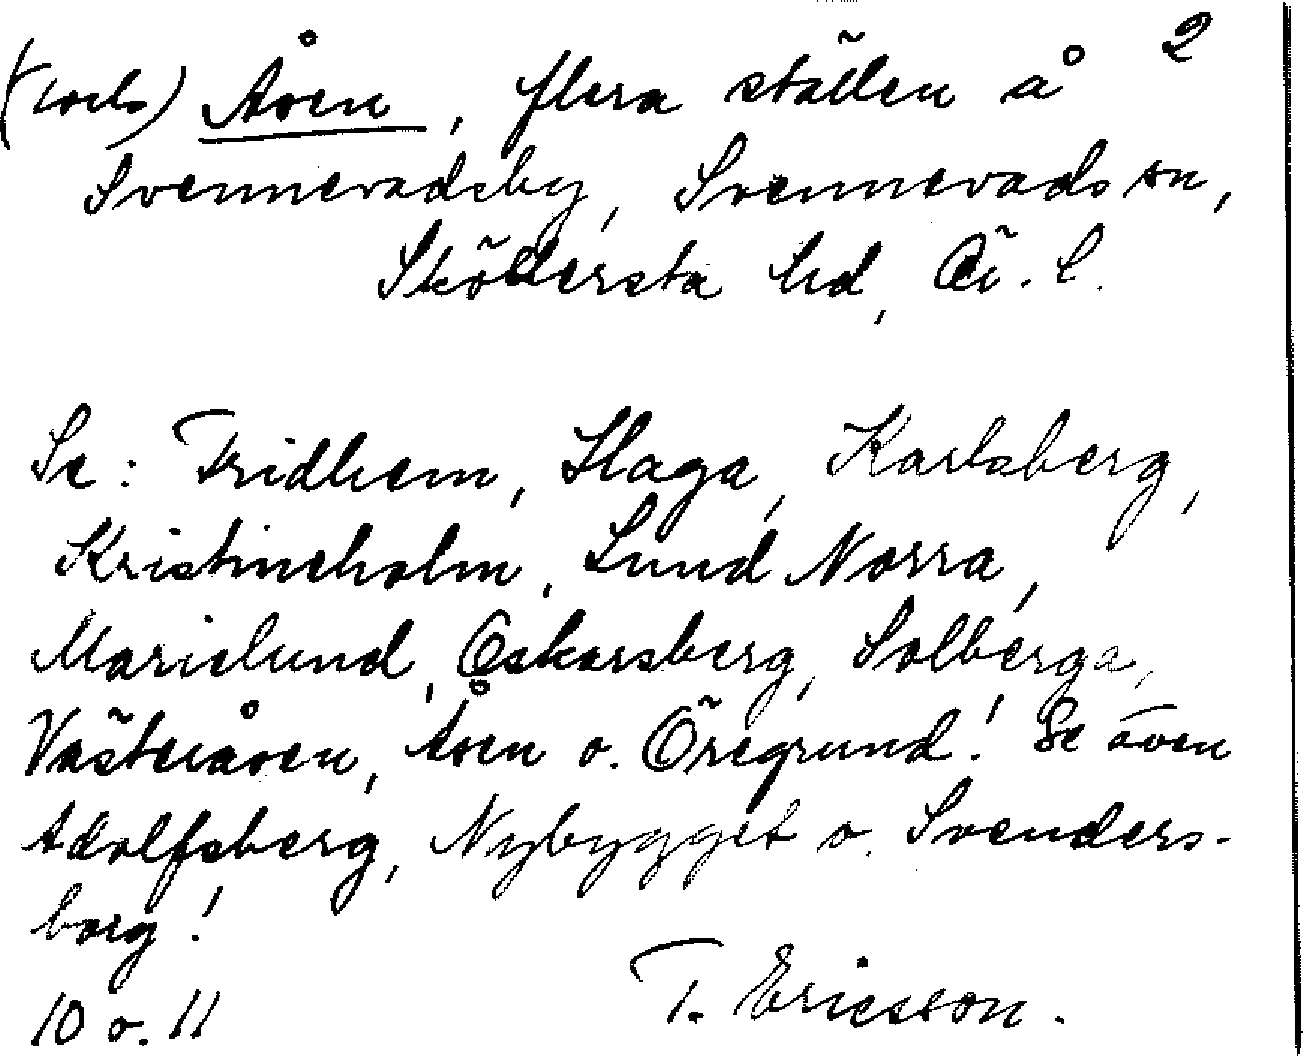 2
(torb) Åven, flera ställen å
Svennevadsby, Svennevads sn,
Sköllersta hd, Ö. l.
Se: Fridhem, Haga, Karlsberg,
Kristineholm, Lund Norra,
Marielund, Oskarsberg, Solberga,
Västeråven, Åven o. Öregrund! Se även
Adolfsberg, Nybygget o. Svenders-
borg!
10 o. 11
T. Ericsson.